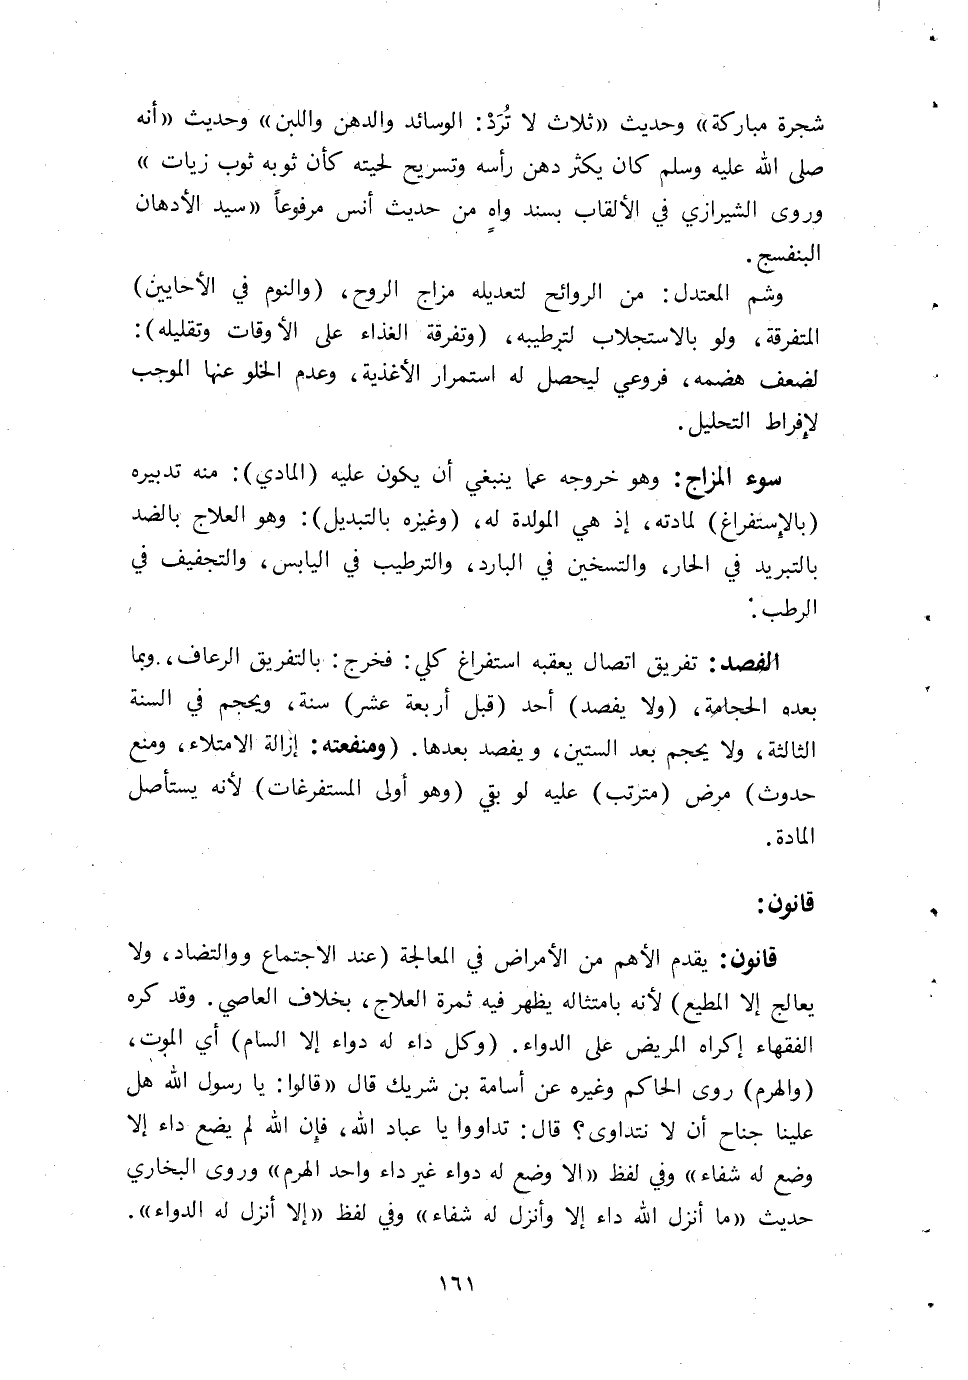 شجرة مباركة» وحديث «ثلاث لا تُرَدْ: الوسائد والدهن واللبن» وحديث «أنه
صلى الله عليه وسلم كان يكثر دهن رأسه وتسريح لحيته كأن ثوبه ثوب زيات »
وروى الشيرازي في الألقاب بسند واهٍ من حديث أنس مرفوعاً «سيد الأدهان
البنفسج.
وشم المعتدل: من الروائح لتعديله مزاج الروح، (والنوم في الأحايين)
المتفرقة، ولو بالاستجلاب لترطيبه، (وتفرقة الغذاء على الأوقات وتقليله):
لضعف هضمه، فروعي ليحصل له استمرار الأغذية، وعدم الخلو عنها الموجب
لإفراط التحليل.
سوء المزاج: وهو خروجه عما ينبغي أن يكون عليه (المادي): منه تدبيره
(بالإستفراغ) لمادته، إذ هي المولدة له، (وغيزه بالتبديل): وهو العلاج بالضد
بالتبريد في الحار، والتسخين في البارد، والترطيب في اليابس، والتجفيف في
الرطب.
الفصد: تفريق اتصال يعقبه استفراغ كلي: فخرج: بالتفريق الرعاف، وبما
بعده الحجامة، (ولا يفصد) أحد (قبل أربعة عشر) سنة، ويحجم في السنة
الثالثة، ولا يحجم بعد الستين، ويفصد بعدها. (ومنفعته: إزالة الامتلاء، ومنع
حدوث) مرض (مترتب) عليه لو بقي (وهو أولى المستفرغات) لأنه يستأصل
المادة.
قانون:
قانون: يقدم الأهم من الأمراض في المعالجة (عند الاجتماع ووالتضاد، ولا
يعالج إلا المطيع) لأنه بامتثاله يظهر فيه ثمرة العلاج، بخلاف العاصي. وقد كره
الفقهاء إكراه المريض على الدواء. (وكل داء له دواء إلا السام) أي الموت،
(والهرم) روى الحاكم وغيره عن أسامة بن شريك قال «قالوا: يا رسول الله هل
علينا جناح أن لا نتداوى؟ قال: تداووا يا عباد الله، فإن الله لم يضع داء إلا
وضع له شفاء» وفي لفظ «الا وضع له دواء غير داء واحد الهرم» وروى البخاري
حديث «ما أنزل الله داء إلا وأنزل له شفاء» وفي لفظ «إلا أنزل له الدواء».
١٦١